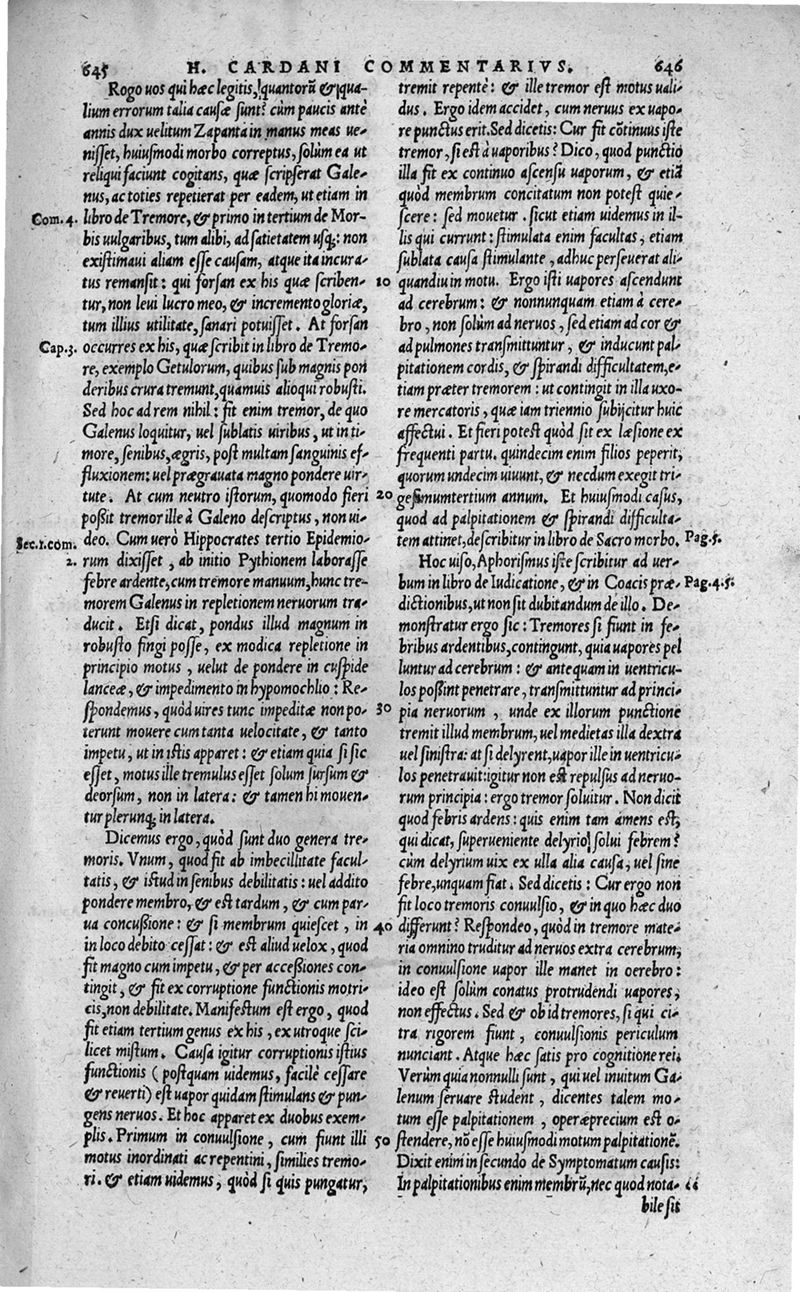 645 H. CARDANI COMMENTARIVS. 646
Rogo uos qui hæc legitis, quantorũ & qua-
lium errorum talia causæ sunt? cùm paucis antè
annis dux uelitum Zapanta in manus meas ue-
nisset, huiusmodi morbo correptus, solùm ea ut
reliqui faciunt cogitans, quæ scripserat Gale-
nus, ac toties repetierat per eadem, ut etiam in
Com. 4. libro de Tremore, & primo in tertium de Mor-
bis uulgaribus, tum alibi, ad satietatem usq;: non
existimaui aliam esse causam, atque ita incura-
tus remansit: qui forsan ex his quæ scriben-
tur, non leui lucro meo, & incremento gloriæ,
tum illius utilitate, sanari potuisset. At forsan
Cap. 3. occurres ex his, quæ scribit in libro de Tremo-
re, exemplo Getulorum, quibus sub magnis pon
deribus crura tremunt, quamuis alioqui robusti.
Sed hoc ad rem nihil: fit enim tremor, de quo
Galenus loquitur, uel sublatis uiribus, ut in ti-
more, senibus, ægris, post multam sanguinis ef-
fluxionem: uel prægrauata magno pondere uir-
tute. At cum neutro istorum, quomodo fieri
possit tremor ille à Galeno descriptus, non ui-
Sec. 1. com. deo. Cum uerò Hippocrates tertio Epidemio-
2. rum dixisset, ab initio Pythionem laborasse
febre ardente, cum tremore manuum, hunc tre-
morem Galenus in repletionem neruorum tra-
ducit. Etsi dicat, pondus illud magnum in
robusto fingi posse, ex modica repletione in
principio motus, uelut de pondere in cuspide
lanceæ, & impedimento in hypomochlio: Re-
spondemus, quòd uires tunc impeditæ non po-
terunt mouere cum tanta uelocitate, & tanto
impetu, ut in istis apparet: & etiam quia si sic
esset, motus ille tremulus esset solum sursum &
deorsum, non in latera: & tamen hi mouen-
tur plerunq; in latera.
Dicemus ergo, quòd sunt duo genera tre-
moris. Vnum, quod fit ab imbecillitate facul-
tatis, & istud in senibus debilitatis: uel addito
pondere membro, & est tardum, & cum par-
ua concussione: & si membrum quiescet, in
in loco debito cessat: & est aliud uelox, quod
fit magno cum impetu, & per accessiones con-
tingit, & fit ex corruptione functionis motri-
cis, non debilitate. Manifestum est ergo, quod
fit etiam tertium genus ex his, ex utroque sci-
licet mistum. Causa igitur corruptionis istius
functionis (postquam uidemus, facilè cessare
& reuerti) est uapor quidam stimulans & pun-
gens neruos. Et hoc apparet ex duobus exem-
plis. Primum in conuulsione, cum fiunt illi
motus inordinati ac repentini, similies tremo-
ri. & etiam uidemus, quòd si quis pungatur,
tremit repentè: & ille tremor est motus uali-
dus. Ergo idem accidet, cum neruus ex uapo-
re punctus erit. Sed dicetis: Cur fit cõtinuus iste
tremor, si est à uaporibus? Dico, quod punctio
illa fit ex continuo ascensu uaporum, & etiã
quòd membrum concitatum non potest quie-
scere: sed mouetur. sicut etiam uidemus in il-
lis qui currunt: stimulata enim facultas, etiam
sublata causa stimulante, adhuc perseuerat ali-
10 quandiu in motu. Ergo isti uapores ascendunt
ad cerebrum: & nonnunquam etiam à cere-
bro, non solùm ad neruos, sed etiam ad cor &
ad pulmones transmittuntur, & inducunt pal-
pitationem cordis, & spirandi difficultatem, e-
tiam præter tremorem: ut contingit in illa uxo-
re mercatoris, quæ iam triennio subijcitur huic
affectui. Et fieri potest quòd sit ex læsione ex
frequenti partu. quindecim enim filios peperit,
quorum undecim uiuunt, & necdum exegit tri-
20 gesimumtertium annum. Et huiusmodi casus,
quod ad palpitationem & spirandi difficulta-
tem attinet, describitur in libro de Sacro morbo. Pag. 5.
Hoc uiso, Aphorismus iste scribitur ad uer-
bum in libro de Iudicatione, & in Coacis præ- Pag. 4. 5.
dictionibus, ut non sit dubitandum de illo. De-
monstratur ergo sic: Tremores si fiunt in fe-
bribus ardentibus, contingunt, quia uapores pel
luntur ad cerebrum: & antequam in uentricu-
los possint penetrare, transmittuntur ad princi-
30 pia neruorum, unde ex illorum punctione
tremit illud membrum, uel medietas illa dextra
uel sinistra: at si delyrent, uapor ille in uentricu-
los penetrauit: igitur non est repulsus ad neruo-
rum principia: ergo tremor soluitur. Non dicit
quod febris ardens: quis enim tam amens est,
qui dicat, superueniente delyrio, solui febrem?
cùm delyrium uix ex ulla alia causa, uel sine
febre, unquam fiat. Sed dicetis: Cur ergo non
fit loco tremoris conuulsio, & in quo hæc duo
40 differunt? Respondeo, quòd in tremore mate-
ria omnino truditur ad neruos extra cerebrum,
in conuulsione uapor ille manet in oerebro:
ideo est solùm conatus protrudendi uapores,
non effectus. Sed & ob id tremores, si qui ci-
tra rigorem fiunt, conuulsionis periculum
nunciant. Atque hæc satis pro cognitione rei.
Verùm quia nonnulli sunt, qui uel inuitum Ga-
lenum seruare student, dicentes talem mo-
tum esse palpitationem, operæprecium est o-
50 stendere, nõ esse huiusmodi motum palpitationẽ.
Dixit enim in secundo de Symptomatum causis:
In palpitationibus enim membrũ, nec quod nota- "
bile sit